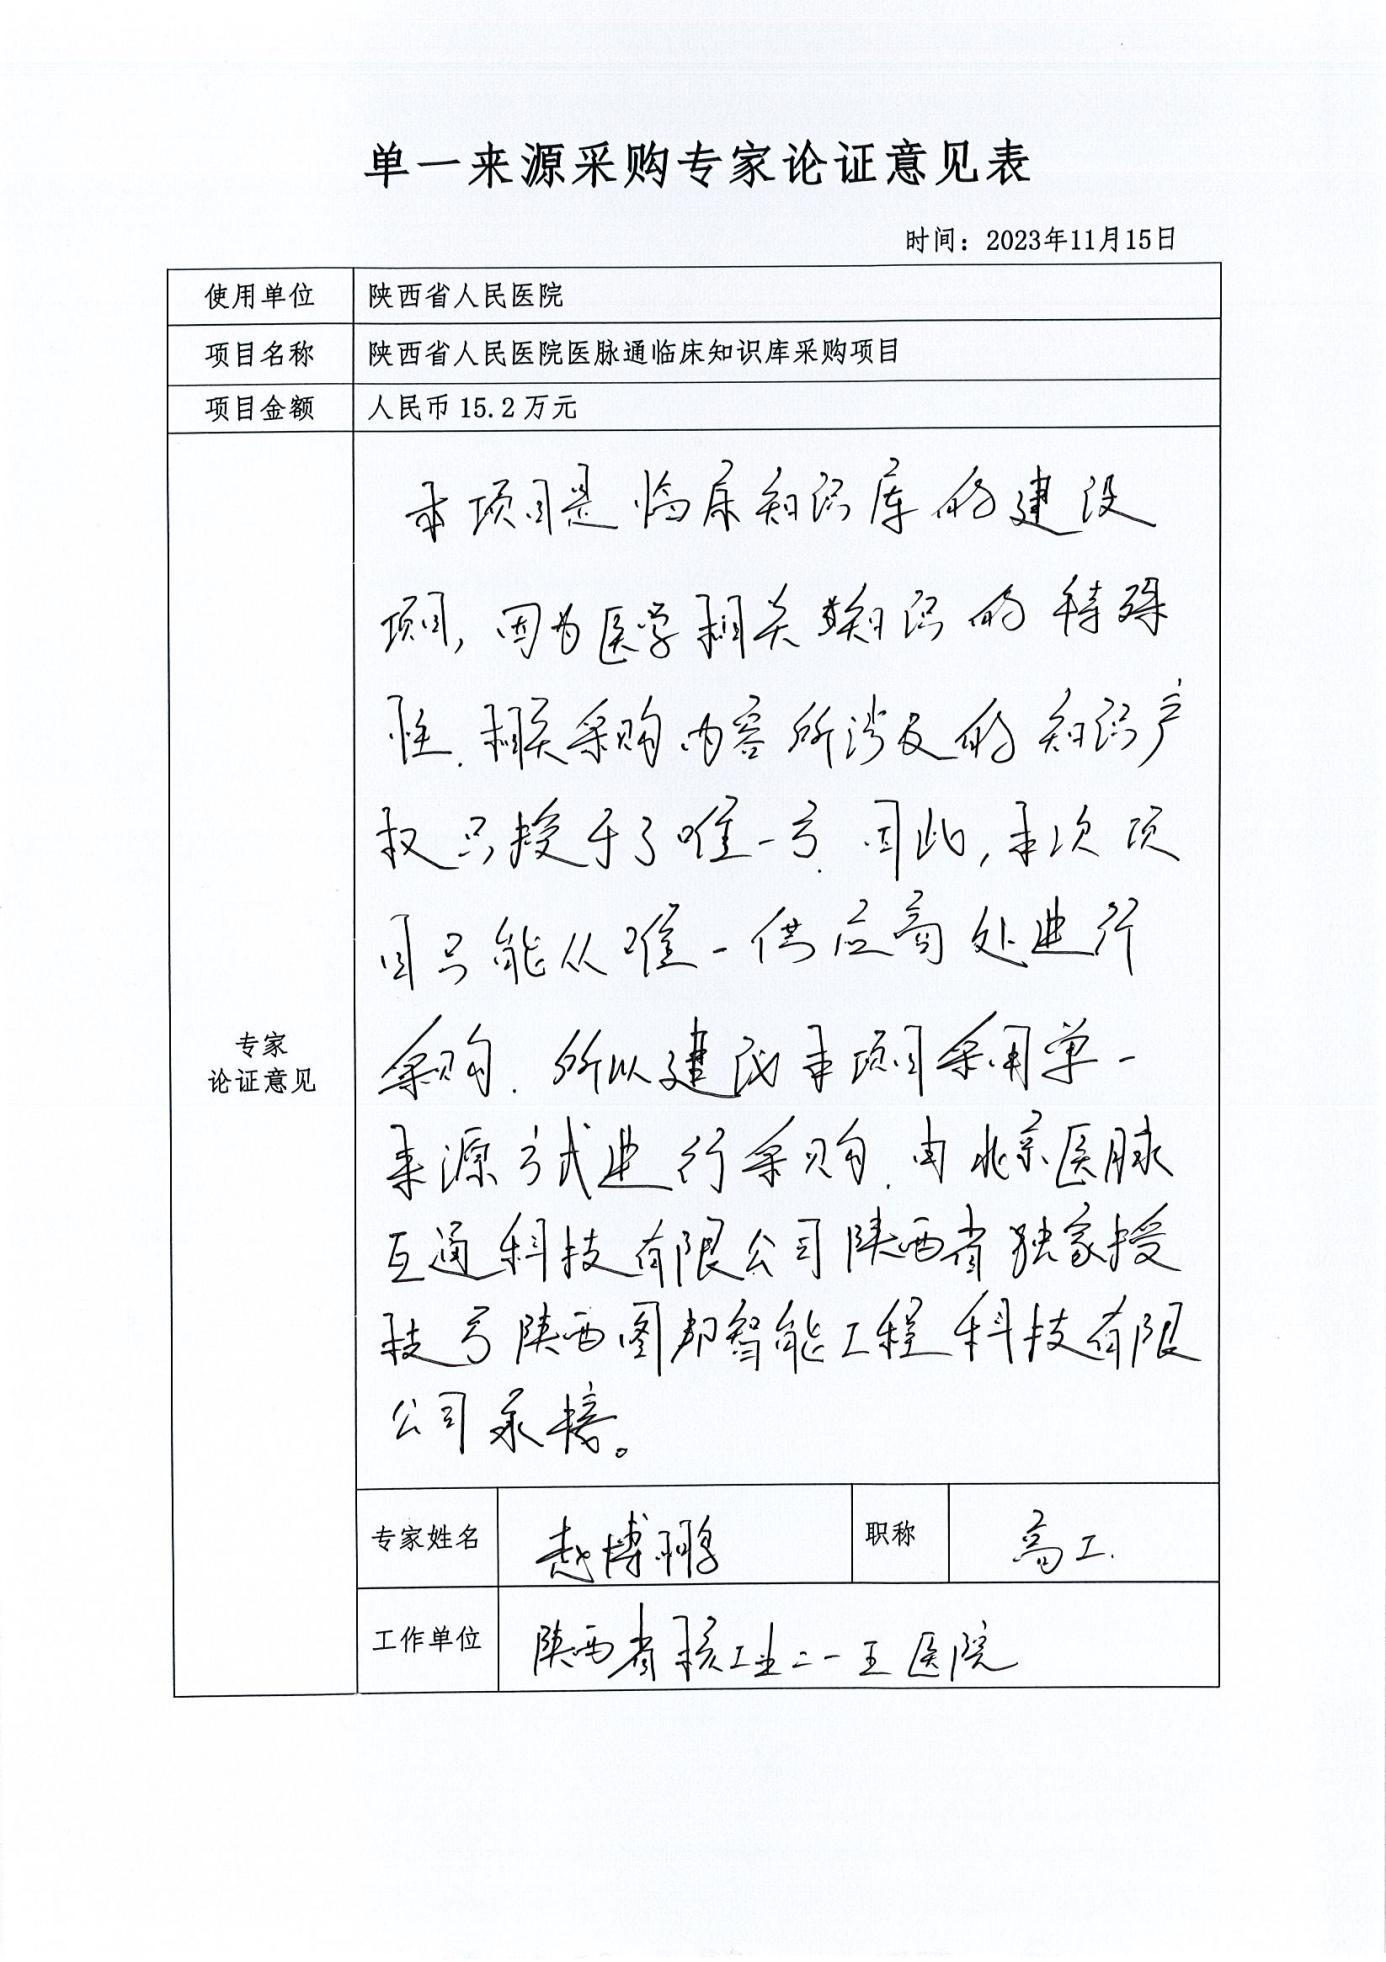 单一来源采购专家论证意见表
时间：2023年11月15日
使用单位 陕西省人民医院
项目名称 陕西省人民医院医脉通临床知识库采购项目
项目金额 人民币15.2万元
专家
论证意见
本项目是临床知识库的建设
项目，因为医学相关知识的特殊
性．相关采购内容所涉及的知识产
权只授于了唯一方．因此，本次项
目只能从唯一供应商处进行
采购．所以建议本项目采用单一
来源方式进行采购．由北京医脉
互通科技有限公司陕西省独家授
权方陕西图邦智能工程科技有限
公司承接。
专家姓名 赵博鹏 职称 高工．
工作单位 陕西省核工业二一五医院